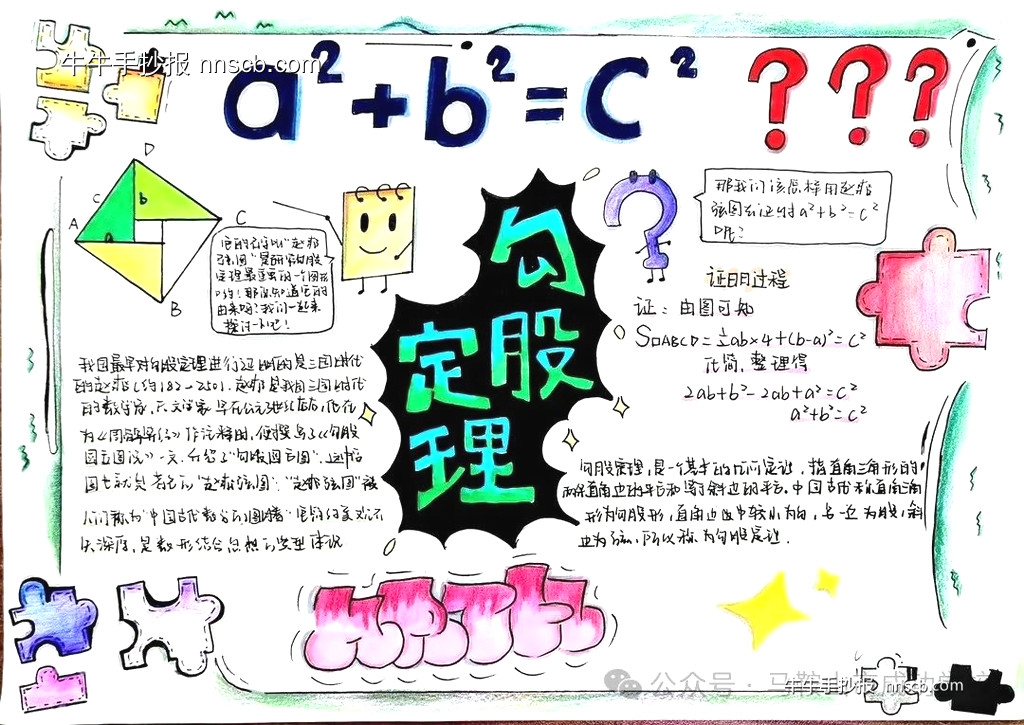 牛牛手抄报 nnscb.com
a²+b²=c²???
D
c
b
A
a
C
B
它的名字叫“赵爽
弦图”是研究勾股
定理最重要的一个图形
哟！那你知道它的
由来吗？我们一起来
探讨一下吧！
那我们该怎样用赵爽
弦图去证明a²+b²=c²
呢？
勾股定理
证明过程
证：由图可知
S□ABCD=½ab×4+(b-a)²=c²
化简，整理得
2ab+b²-2ab+a²=c²
a²+b²=c²
我国最早对勾股定理进行证明的是三国时代
的赵爽(约182-250)．赵爽是我国三国时代
的数学家，天文学家
为《周髀算经》作注释时，便撰写了《勾股
圆方图说》一文，介绍了“勾股圆方图”，这幅
图也就是著名的“赵爽弦图”．“赵爽弦图”被
人们称为“中国古代数学的图腾”
是数形结合思想的典型体现
勾股定理，是一个基本的几何定理，指直角三角形的
两条直角边的平方和等于斜边的平方．中国古代称直角三角
形为勾股形，直角边中较小为勾，另一边为股，斜
边为弦，所以称为勾股定理．
MATH
公众号·马鞍山市成功学校
牛牛手抄报 nnscb.com